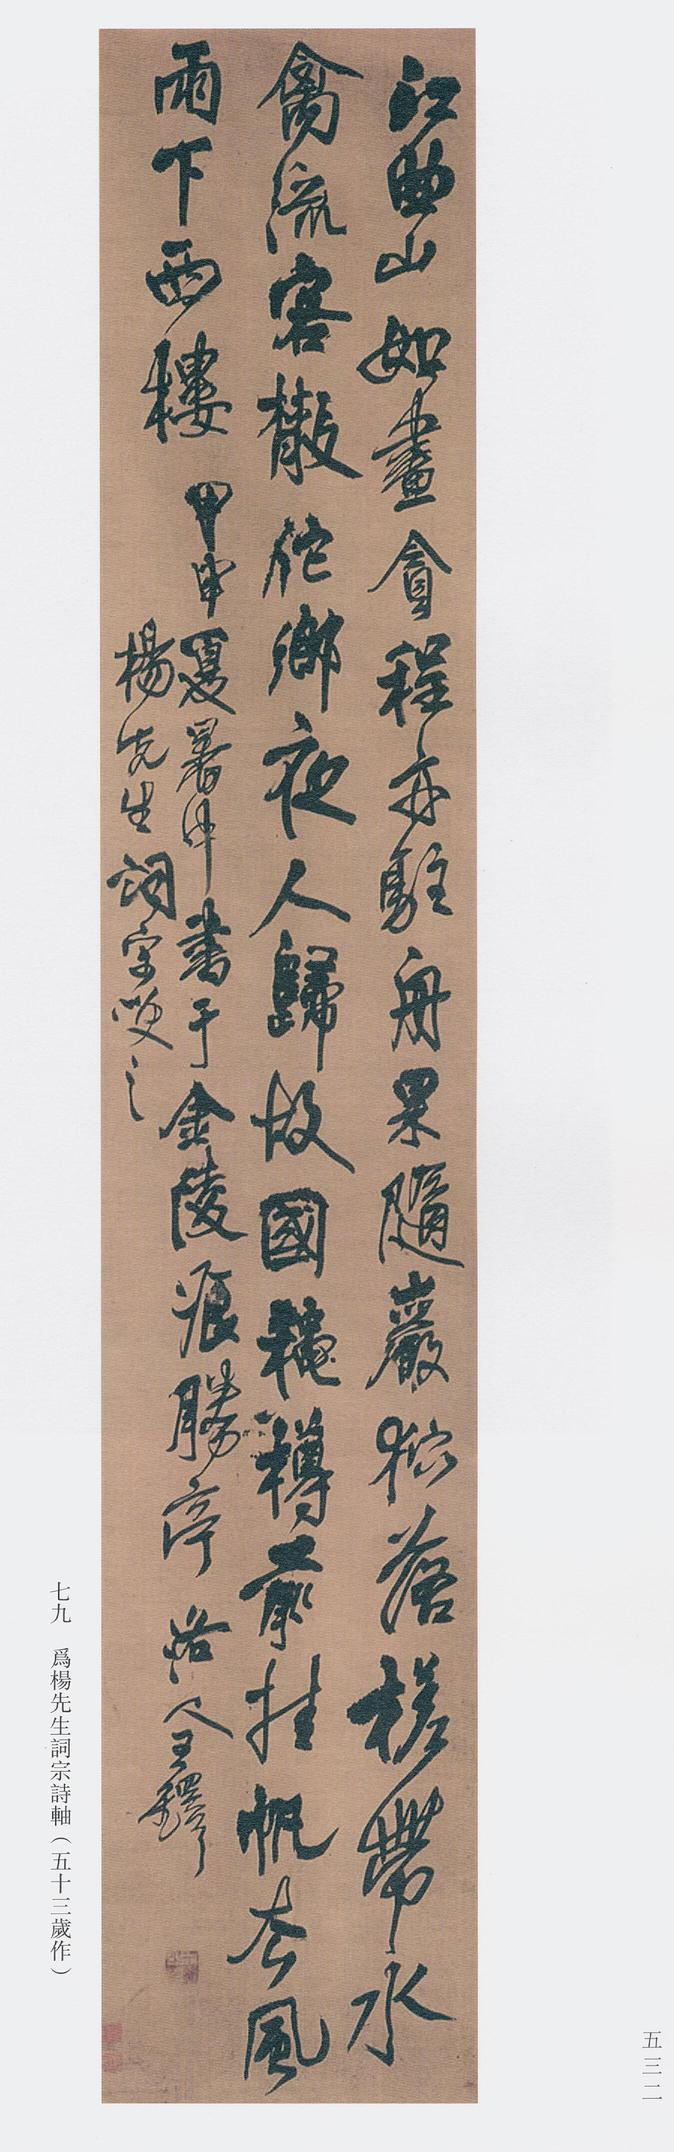 江曲山如畫貪程亦駐舟果隨巖狖落槎帶水
禽流客散佗鄉夜人歸故國穐樽前挂帆去風
雨下西樓 甲申夏暑中書于金陵痕勝亭 洛人王鐸
楊先生詞宗咲之
七九 爲楊先生詞宗詩軸（五十三歲作）
五三二